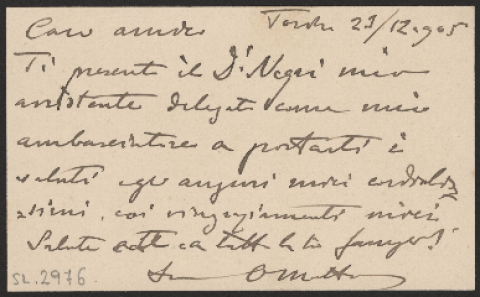 Caro amico 23/12.905
Ti presento il Dr. Negri mio
assistente delegato come mio
ambasciatore a portarti i
saluti e gli auguri miei cordialis
simi, coi ringraziamenti miei
Salute a te e a tutta la tua famiglia!
SL.2976.